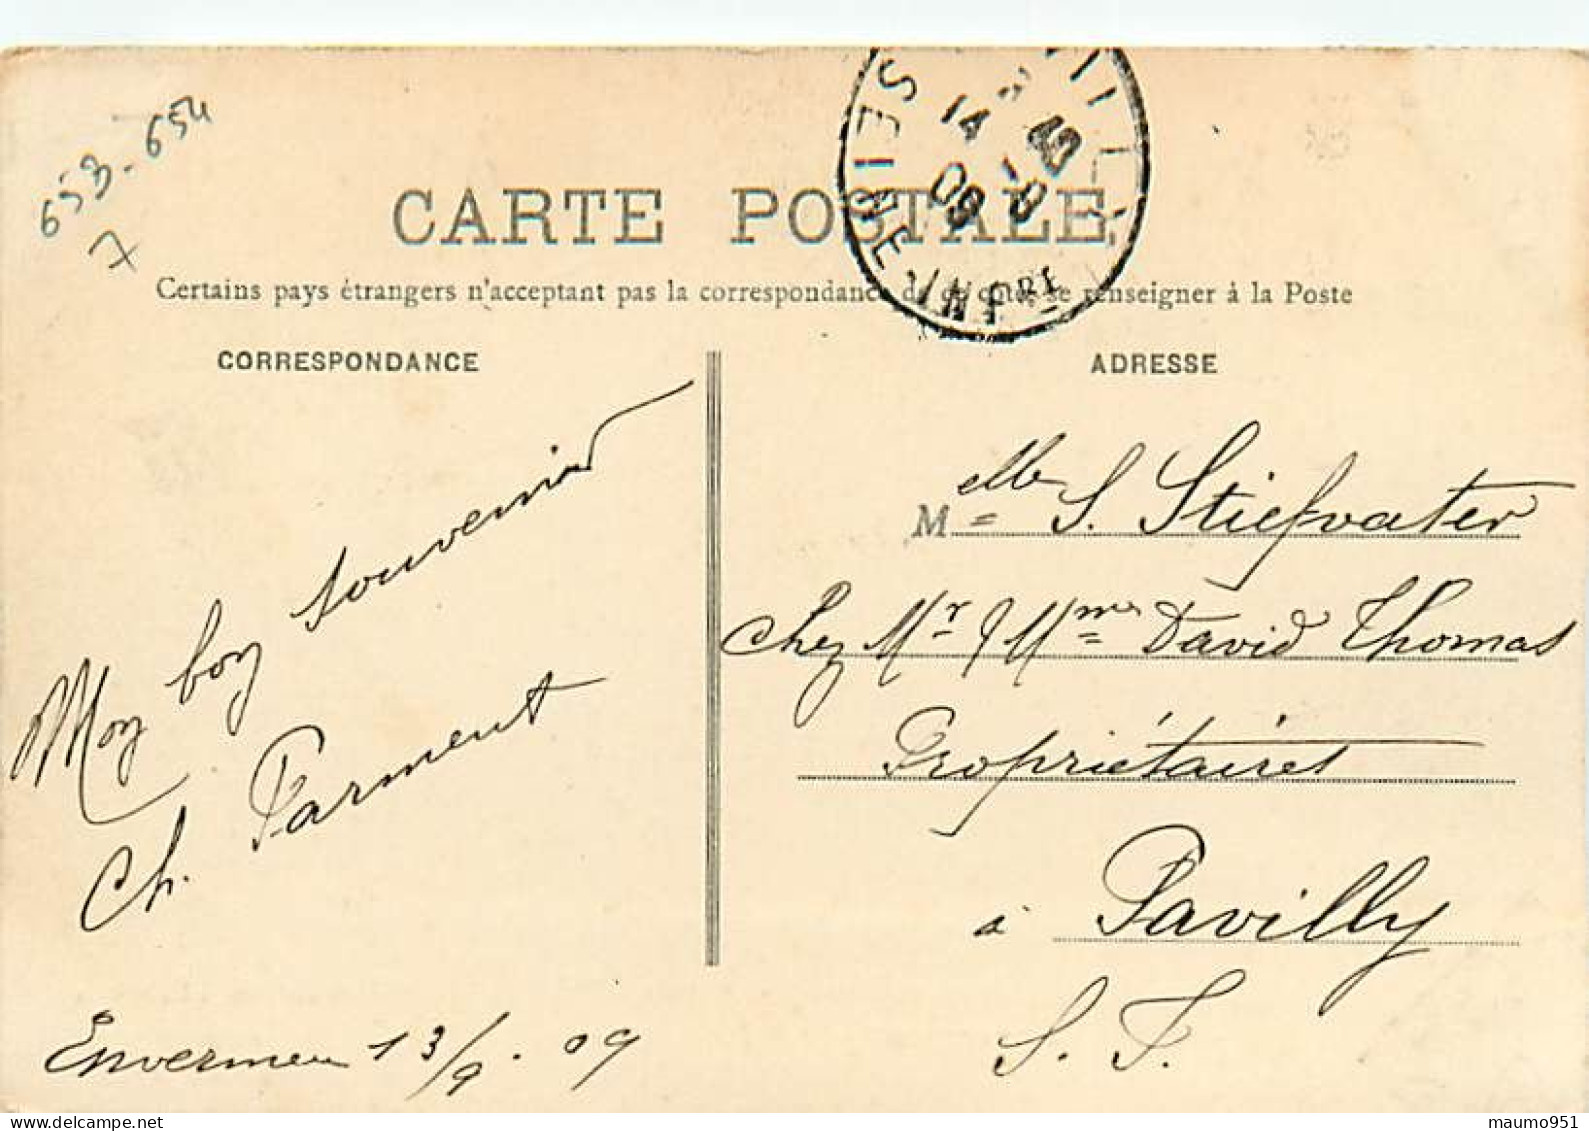 653-654
7
CARTE POSTALE
14 - 9
09
SEINE INFRE
Certains pays étrangers n'acceptant pas la correspondance de ce côté, se renseigner à la Poste
CORRESPONDANCE
Mon bon souvenir
Ch. Parment
Envermeu 13/9.09
ADRESSE
Melle S. Stiefvater
chez Mr & Mme David Thomas
Propriétaires
à Pavilly
S. I.
maumo951